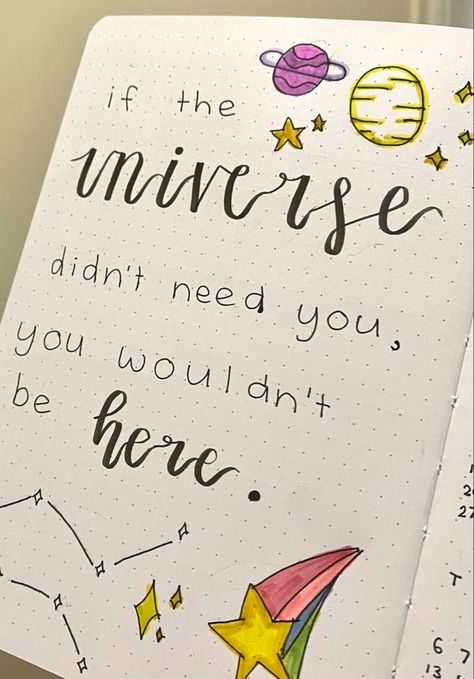 if the
universe
didn't need you,
you wouldn't
be here.
27
T
6 7
13